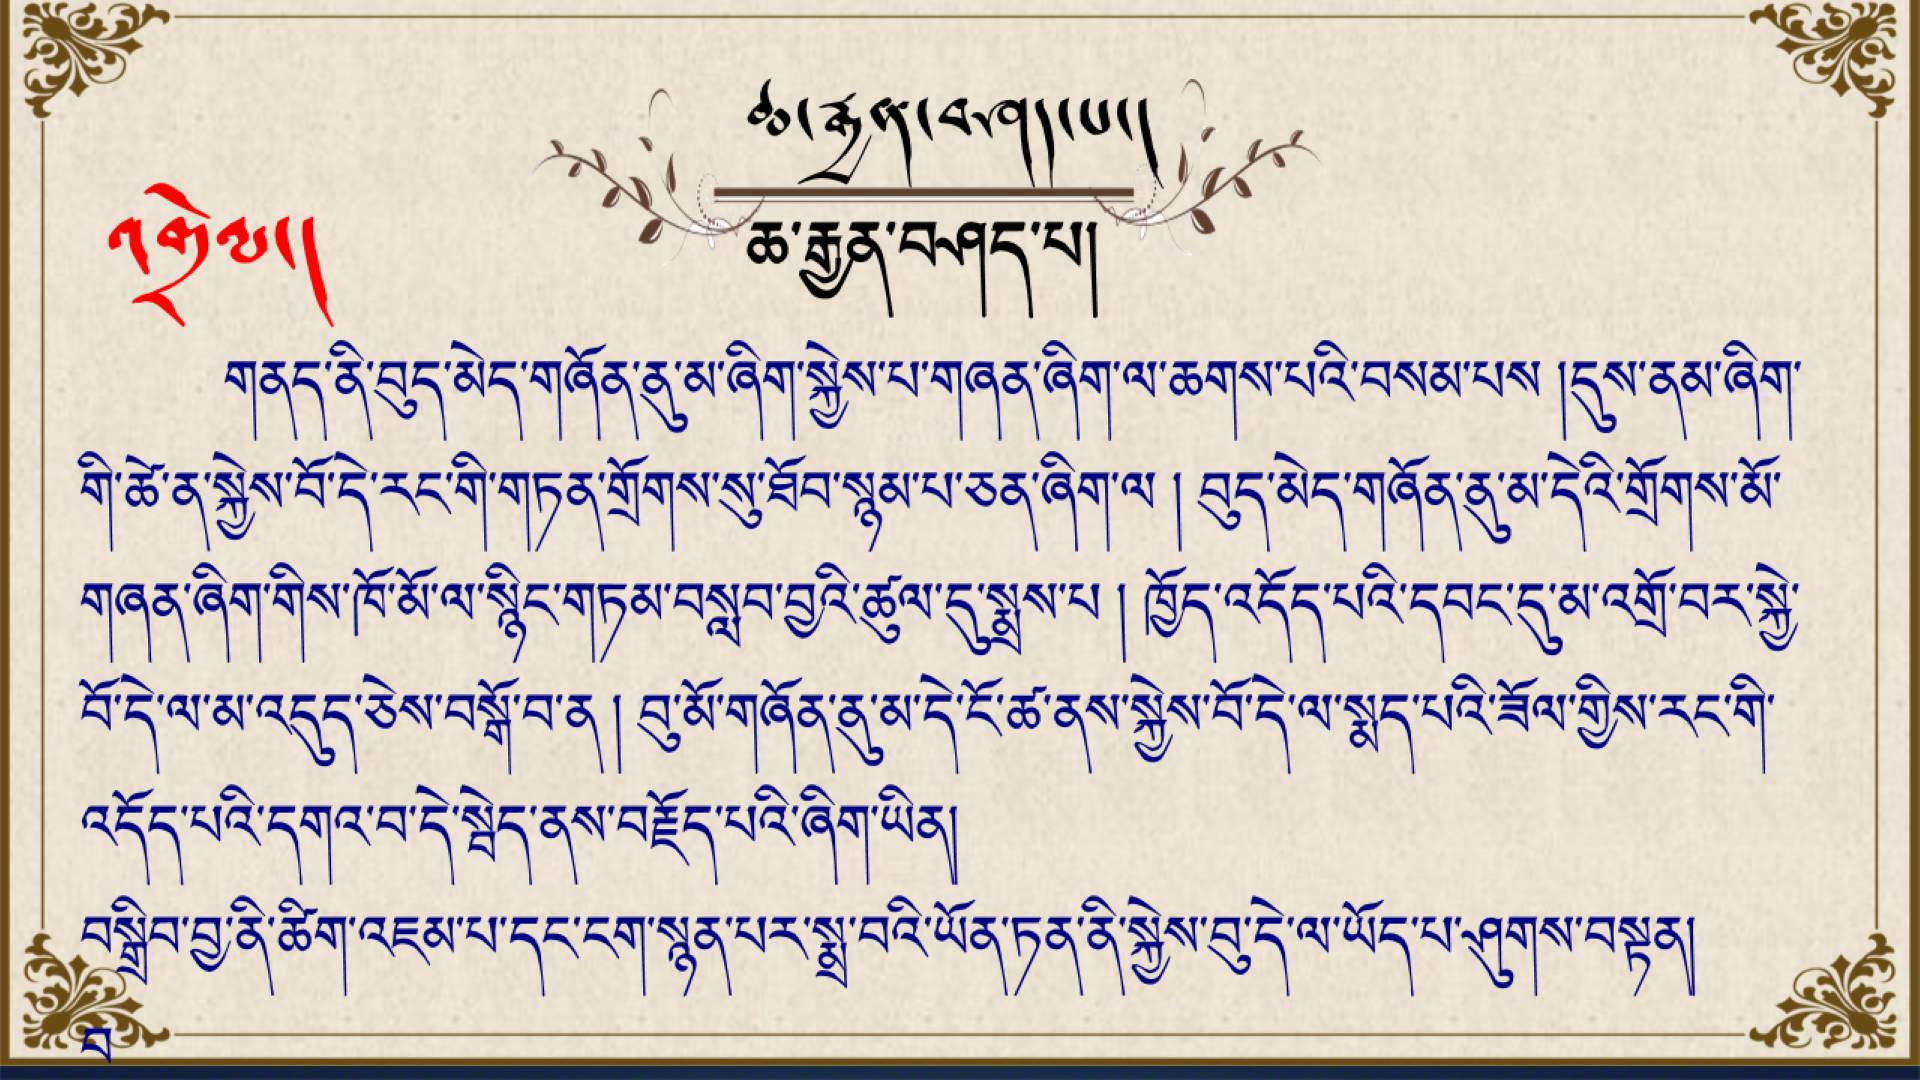 ཆ་རྐྱེན་བཤད་པ།
ཆ་རྐྱན་བཤད་པ།
འགྲེལ་པ།
གནད་ནི་བུད་མེད་གཞོན་ནུ་མ་ཞིག་སྐྱེས་པ་གཞན་ཞིག་ལ་ཆགས་པའི་བསམ་པས །དུས་ནམ་ཞིག་
གི་ཚེ་ན་སྐྱེས་བོ་དེ་རང་གི་གཏན་གྲོགས་སུ་ཐོབ་སྙམ་པ་ཅན་ཞིག་ལ ། བུད་མེད་གཞོན་ནུ་མ་དེའི་གྲོགས་མོ་
གཞན་ཞིག་གིས་ཁོ་མོ་ལ་སྙིང་གཏམ་བསླབ་བྱའི་ཚུལ་དུ་སྨྲས་པ ། ཁྱོད་འདོད་པའི་དབང་དུ་མ་འགྲོ་བར་སྐྱེ་
བོ་དེ་ལ་མ་འདུད་ཅེས་བསྒོ་བ་ན ། བུ་མོ་གཞོན་ནུ་མ་དེ་ངོ་ཚ་ནས་སྐྱེས་བོ་དེ་ལ་སྨད་པའི་ཟོལ་གྱིས་རང་གི་
འདོད་པའི་དགའ་བ་དེ་སྦེད་ནས་བརྗོད་པའི་ཞིག་ཡིན།
བསྒྲིབ་བྱ་ནི་ཚིག་འཇམ་པ་དང་ངག་སྙན་པར་སྨྲ་བའི་ཡོན་ཏན་ནི་སྐྱེས་བུ་དེ་ལ་ཡོད་པ་ཤུགས་བསྟན།
བ